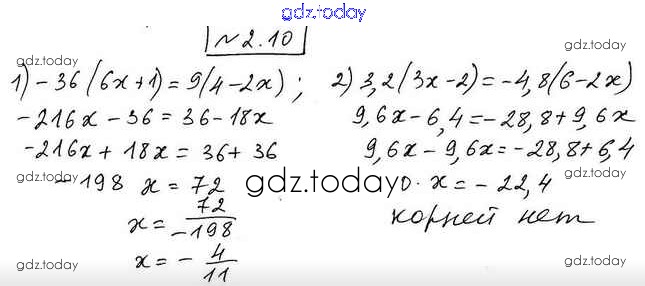 gdz.today
№2.10
gdz.today
gdz.today
1) -36(6x+1)=9(4-2x);
-216x-36=36-18x
-216x+18x=36+36
-198 x=72
x=72/-198
x=-4/11
2) 3,2(3x-2)=-4,8(6-2x)
9,6x-6,4=-28,8+9,6x
9,6x-9,6x=-28,8+6,4
0·x=-22,4
корней нет
gdz.today
gdz.today
gdz.today
gdz.today
gdz.today
gdz.today
gdz.today